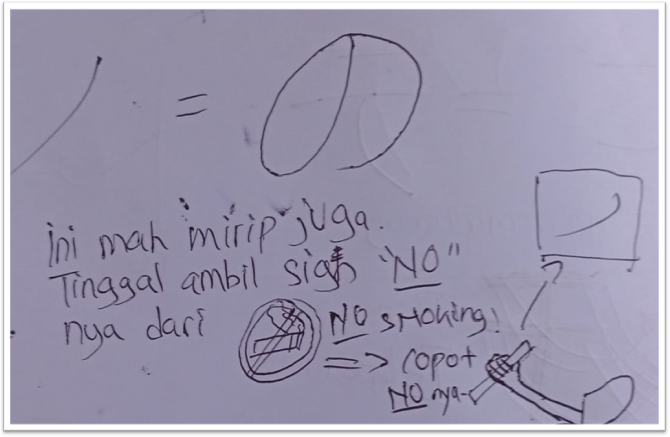 ノ = の
ini mah mirip juga.
Tinggal ambil sign "NO"
nya dari NO smoking!
=> copot
NO nya
ノ